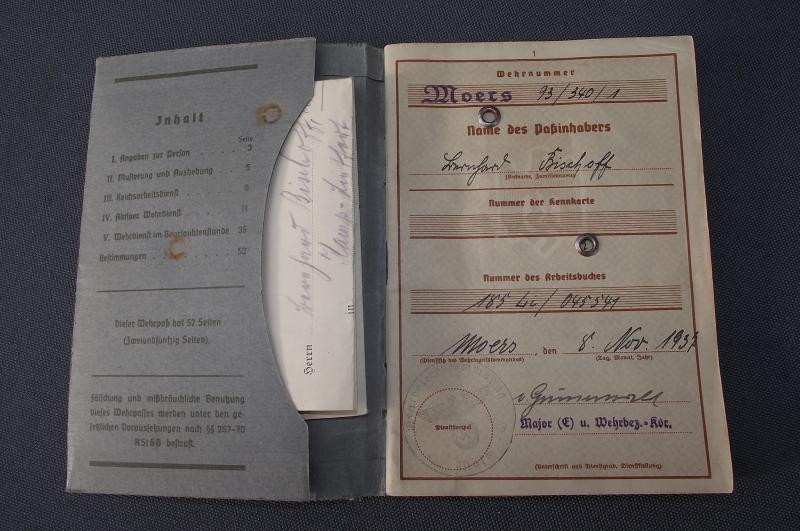 Inhalt
Seite
I. Angaben zur Person . . . . . . 3
II. Musterung und Aushebung . . . 5
III. Reichsarbeitsdienst . . . . . 8
IV. Aktiver Wehrdienst . . . . . 11
V. Wehrdienst im Beurlaubtenstande 36
Bestimmungen . . . . . . . . 52
Dieser Wehrpaß hat 52 Seiten
(Zweiundfünfzig Seiten).
Fälschung und mißbräuchliche Benutzung
dieses Wehrpasses werden unter den ge-
setzlichen Voraussetzungen nach §§ 267–70
RStGB bestraft.
Herrn Bernhard Bischoff
in Kamp-Lintfort
1
Wehrnummer
Moers 93/340/1
Name des Paßinhabers
Bernhard Bischoff
(Vorname, Familienname)
Nummer der Kennkarte
Nummer des Arbeitsbuches
185 /045541
Moers, den 8. Nov. 1937
(Dienstsitz des Wehrbezirkskommandos) (Tag, Monat, Jahr)
Dienststempel
Major (E) u. Wehrbez.-Kdr.
(Unterschrift und Dienstgrad, Dienststellung)